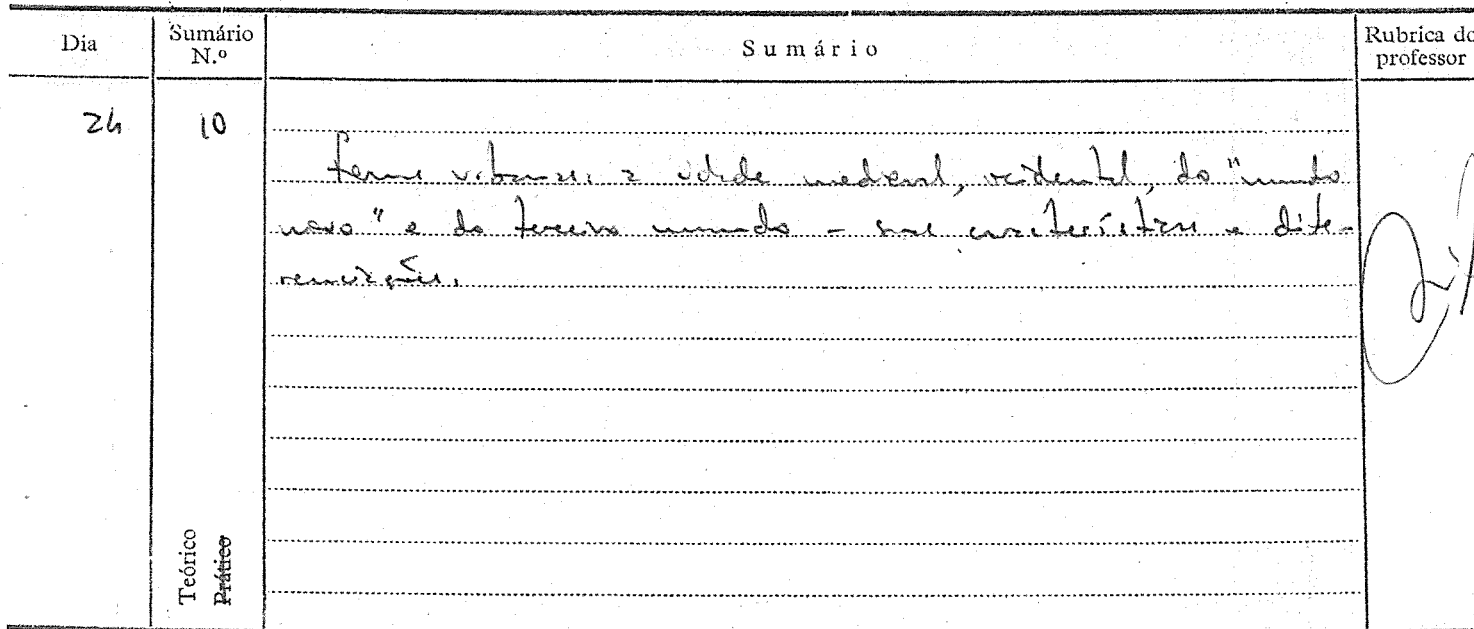 Dia
Sumário
N.º
Sumário
Rubrica do
professor
24
10
formas urbanas: a cidade medieval, ocidental, do "mundo
novo" e do terceiro mundo – suas características e dife-
renciações.
Teórico
Prático